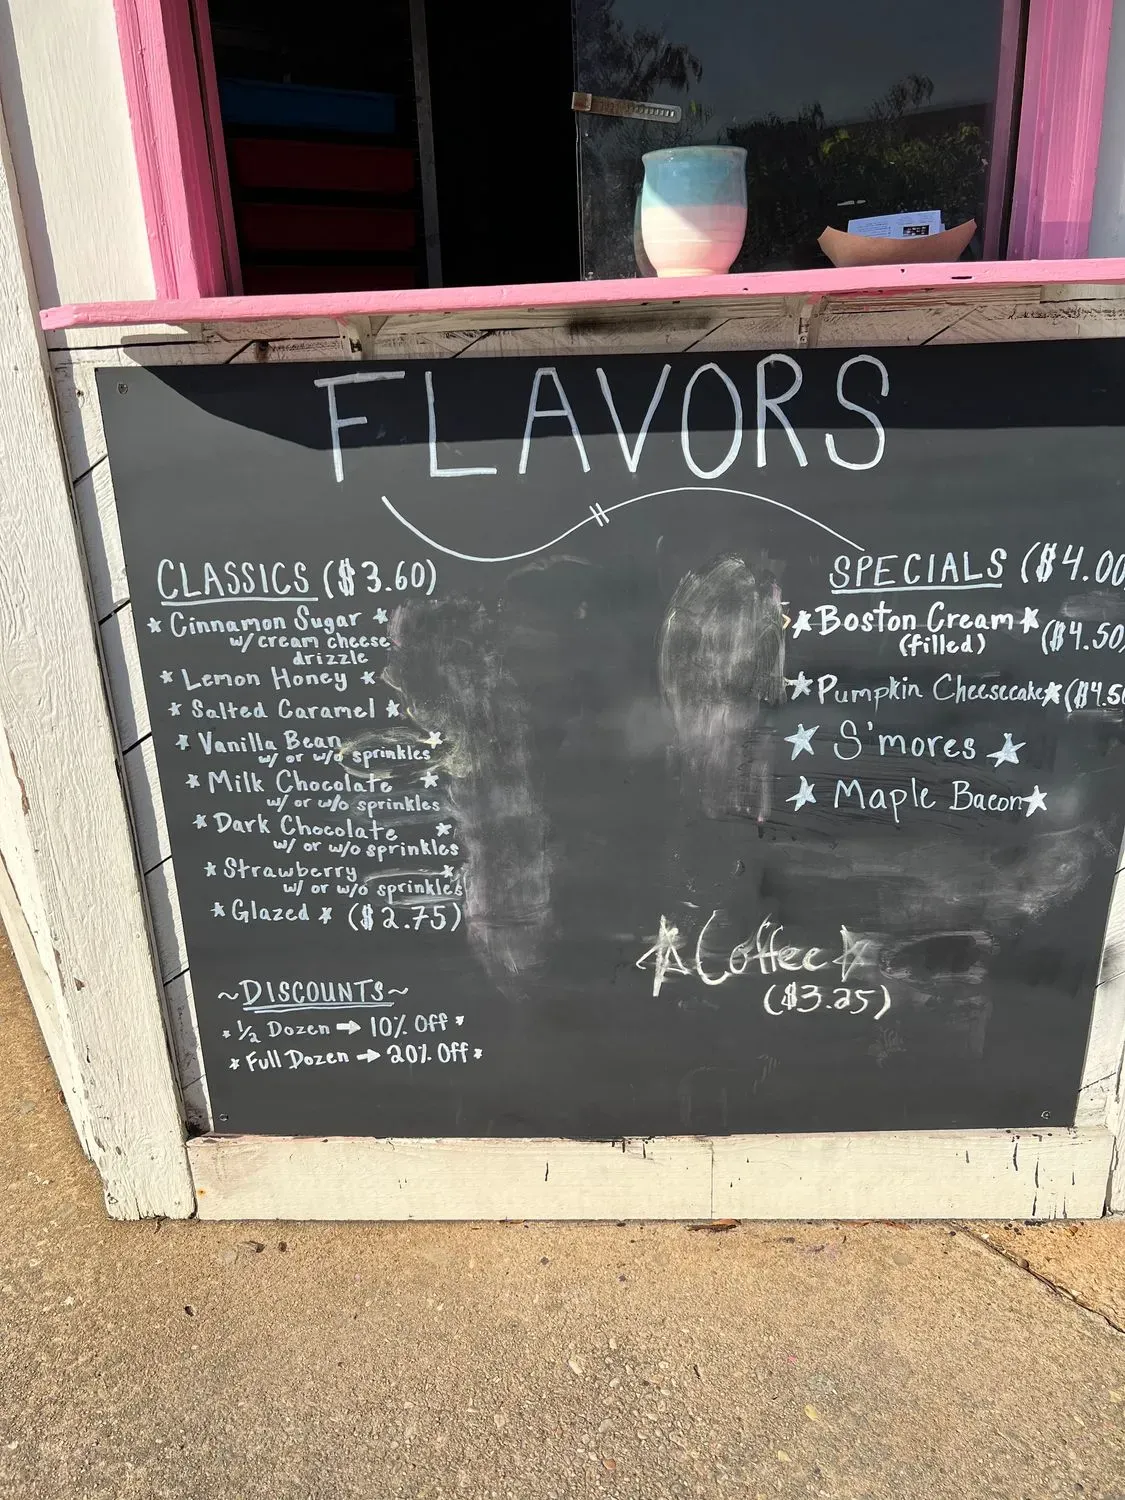 FLAVORS
CLASSICS ($3.60)
Cinnamon Sugar
w/ cream cheese
drizzle
Lemon Honey
Salted Caramel
Vanilla Bean
w/ or w/o sprinkles
Milk Chocolate
w/ or w/o sprinkles
Dark Chocolate
w/ or w/o sprinkles
Strawberry
w/ or w/o sprinkles
Glazed ($2.75)
~DISCOUNTS~
1/2 Dozen → 10% Off
Full Dozen → 20% Off
SPECIALS ($4.00
Boston Cream
(filled) ($4.50)
Pumpkin Cheesecake ($4.50
S'mores
Maple Bacon
Coffee
($3.25)